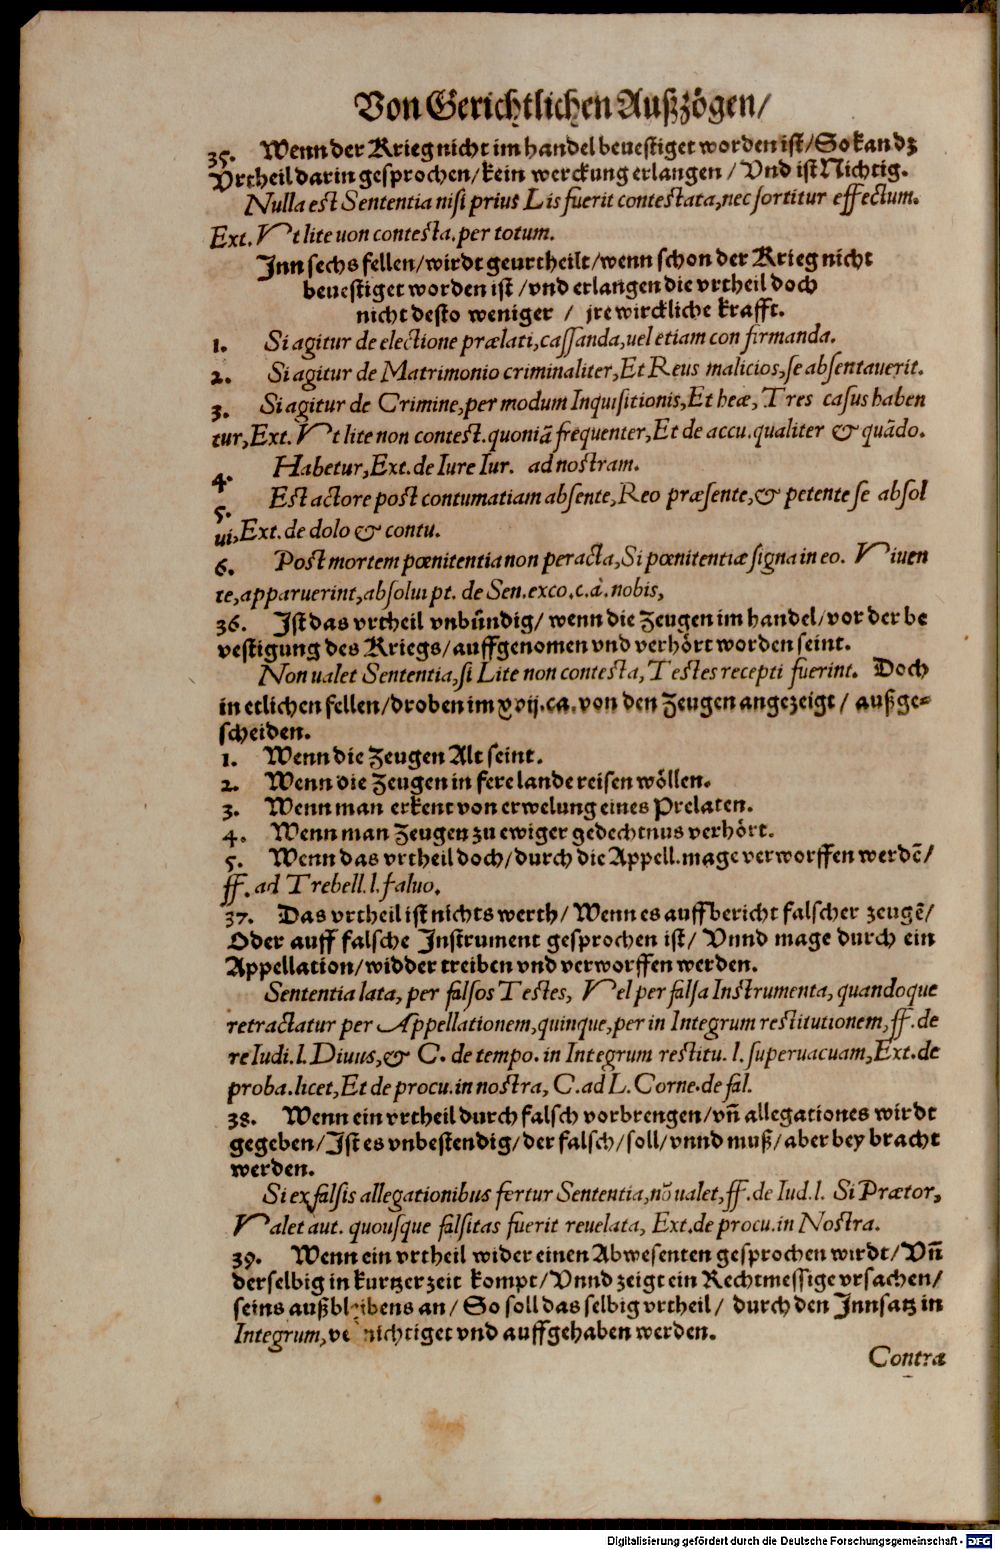 Von Gerichtlichen Außzögen/
35. Wenn der Krieg nicht im handel beuestiget worden ist/So kan dz
Vrtheil darin gesprochen/kein werckung erlangen/Vnd ist Nichtig.
Nulla est Sententia nisi prius Lis fuerit contestata,nec sortitur effectum.
Ext. Vt lite uon contesta.per totum.
Inn sechs fellen/wirdt geurtheilt/wenn schon der Krieg nicht
beuestiget worden ist/vnd erlangen die vrtheil doch
nicht desto weniger / jre wirckliche krafft.
1. Si agitur de electione prælati,cassanda,uel etiam con firmanda.
2. Si agitur de Matrimonio criminaliter,Et Reus malicios,se absentauerit.
3. Si agitur de Crimine,per modum Inquisitionis,Et heæ, Tres casus haben
tur,Ext. Vt lite non contest.quoniã frequenter,Et de accu.qualiter & quãdo.
4. Habetur,Ext.de Iure Iur. ad nostram.
5. Est actore post contumatiam absente,Reo præsente,& petente se absol
ui,Ext.de dolo & contu.
6. Post mortem pœnitentia non peracta,Si pœnitentiæ signa in eo. Viuen
te,apparuerint,absolui pt. de Sen.exco.c.à.nobis,
36. Ist das vrtheil vnbündig/ wenn die Zeugen im handel/vor der be
vestigung des Kriegs/auffgenomen vnd verhört worden seint.
Non ualet Sententia,si Lite non contesta,Testes recepti fuerint. Doch
in etlichen fellen/droben im xvij.ca.von den Zeugen angezeigt/ außge-
scheiden.
1. Wenn die Zeugen Alt seint.
2. Wenn die Zeugen in fere lande reisen wöllen.
3. Wenn man erkent von erwelung eines Prelaten.
4. Wenn man Zeugen zu ewiger gedechtnus verhört.
5. Wenn das vrtheil doch/durch die Appell.mage verworffen werdẽ/
ff.ad Trebell.l.saluo.
37. Das vrtheil ist nichts werth/ Wenn es auff bericht falscher zeugẽ/
Oder auff falsche Instrument gesprochen ist/ Vnnd mage durch ein
Appellation/widder treiben vnd verworffen werden.
Sententia lata, per falsos Testes, Vel per falsa Instrumenta, quandoque
retractatur per Appellationem,quinque,per in Integrum restitutionem,ff.de
re Iudi.l.Diuus,& C. de tempo.in Integrum restitu.l.superuacuam,Ext.de
proba.licet,Et de procu.in nostra, C.ad L.Corne.de fal.
38. Wenn ein vrtheil durch falsch vorbrengen/vñ allegationes wirdt
gegeben/Ist es vnbestendig/der falsch/soll/vnnd muß/aber bey bracht
werden.
Si ex falsis allegationibus fertur Sententia,nõ ualet,ff.de Iud.l. Si Prætor,
Valet aut. quousque falsitas fuerit reuelata, Ext.de procu.in Nostra.
39. Wenn ein vrtheil wider einen Abwesenten gesprochen wirdt/Vñ
derselbig in kurtzer zeit kompt/Vnnd zeigt ein Rechtmessige vrsachen/
seins außbleibens an/ So soll das selbig vrtheil/ durch den Innsatz in
Integrum,vernichtiget vnd auffgehaben werden.
Contra
Digitalisierung gefördert durch die Deutsche Forschungsgemeinschaft - DFG